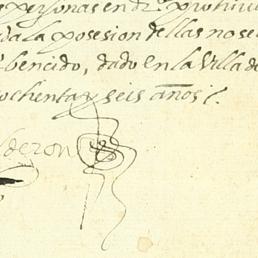 personas en dr̄o prohivi
la posesion dellas no se
bencido, dado en la Villa de
ochenta y seis años
deron